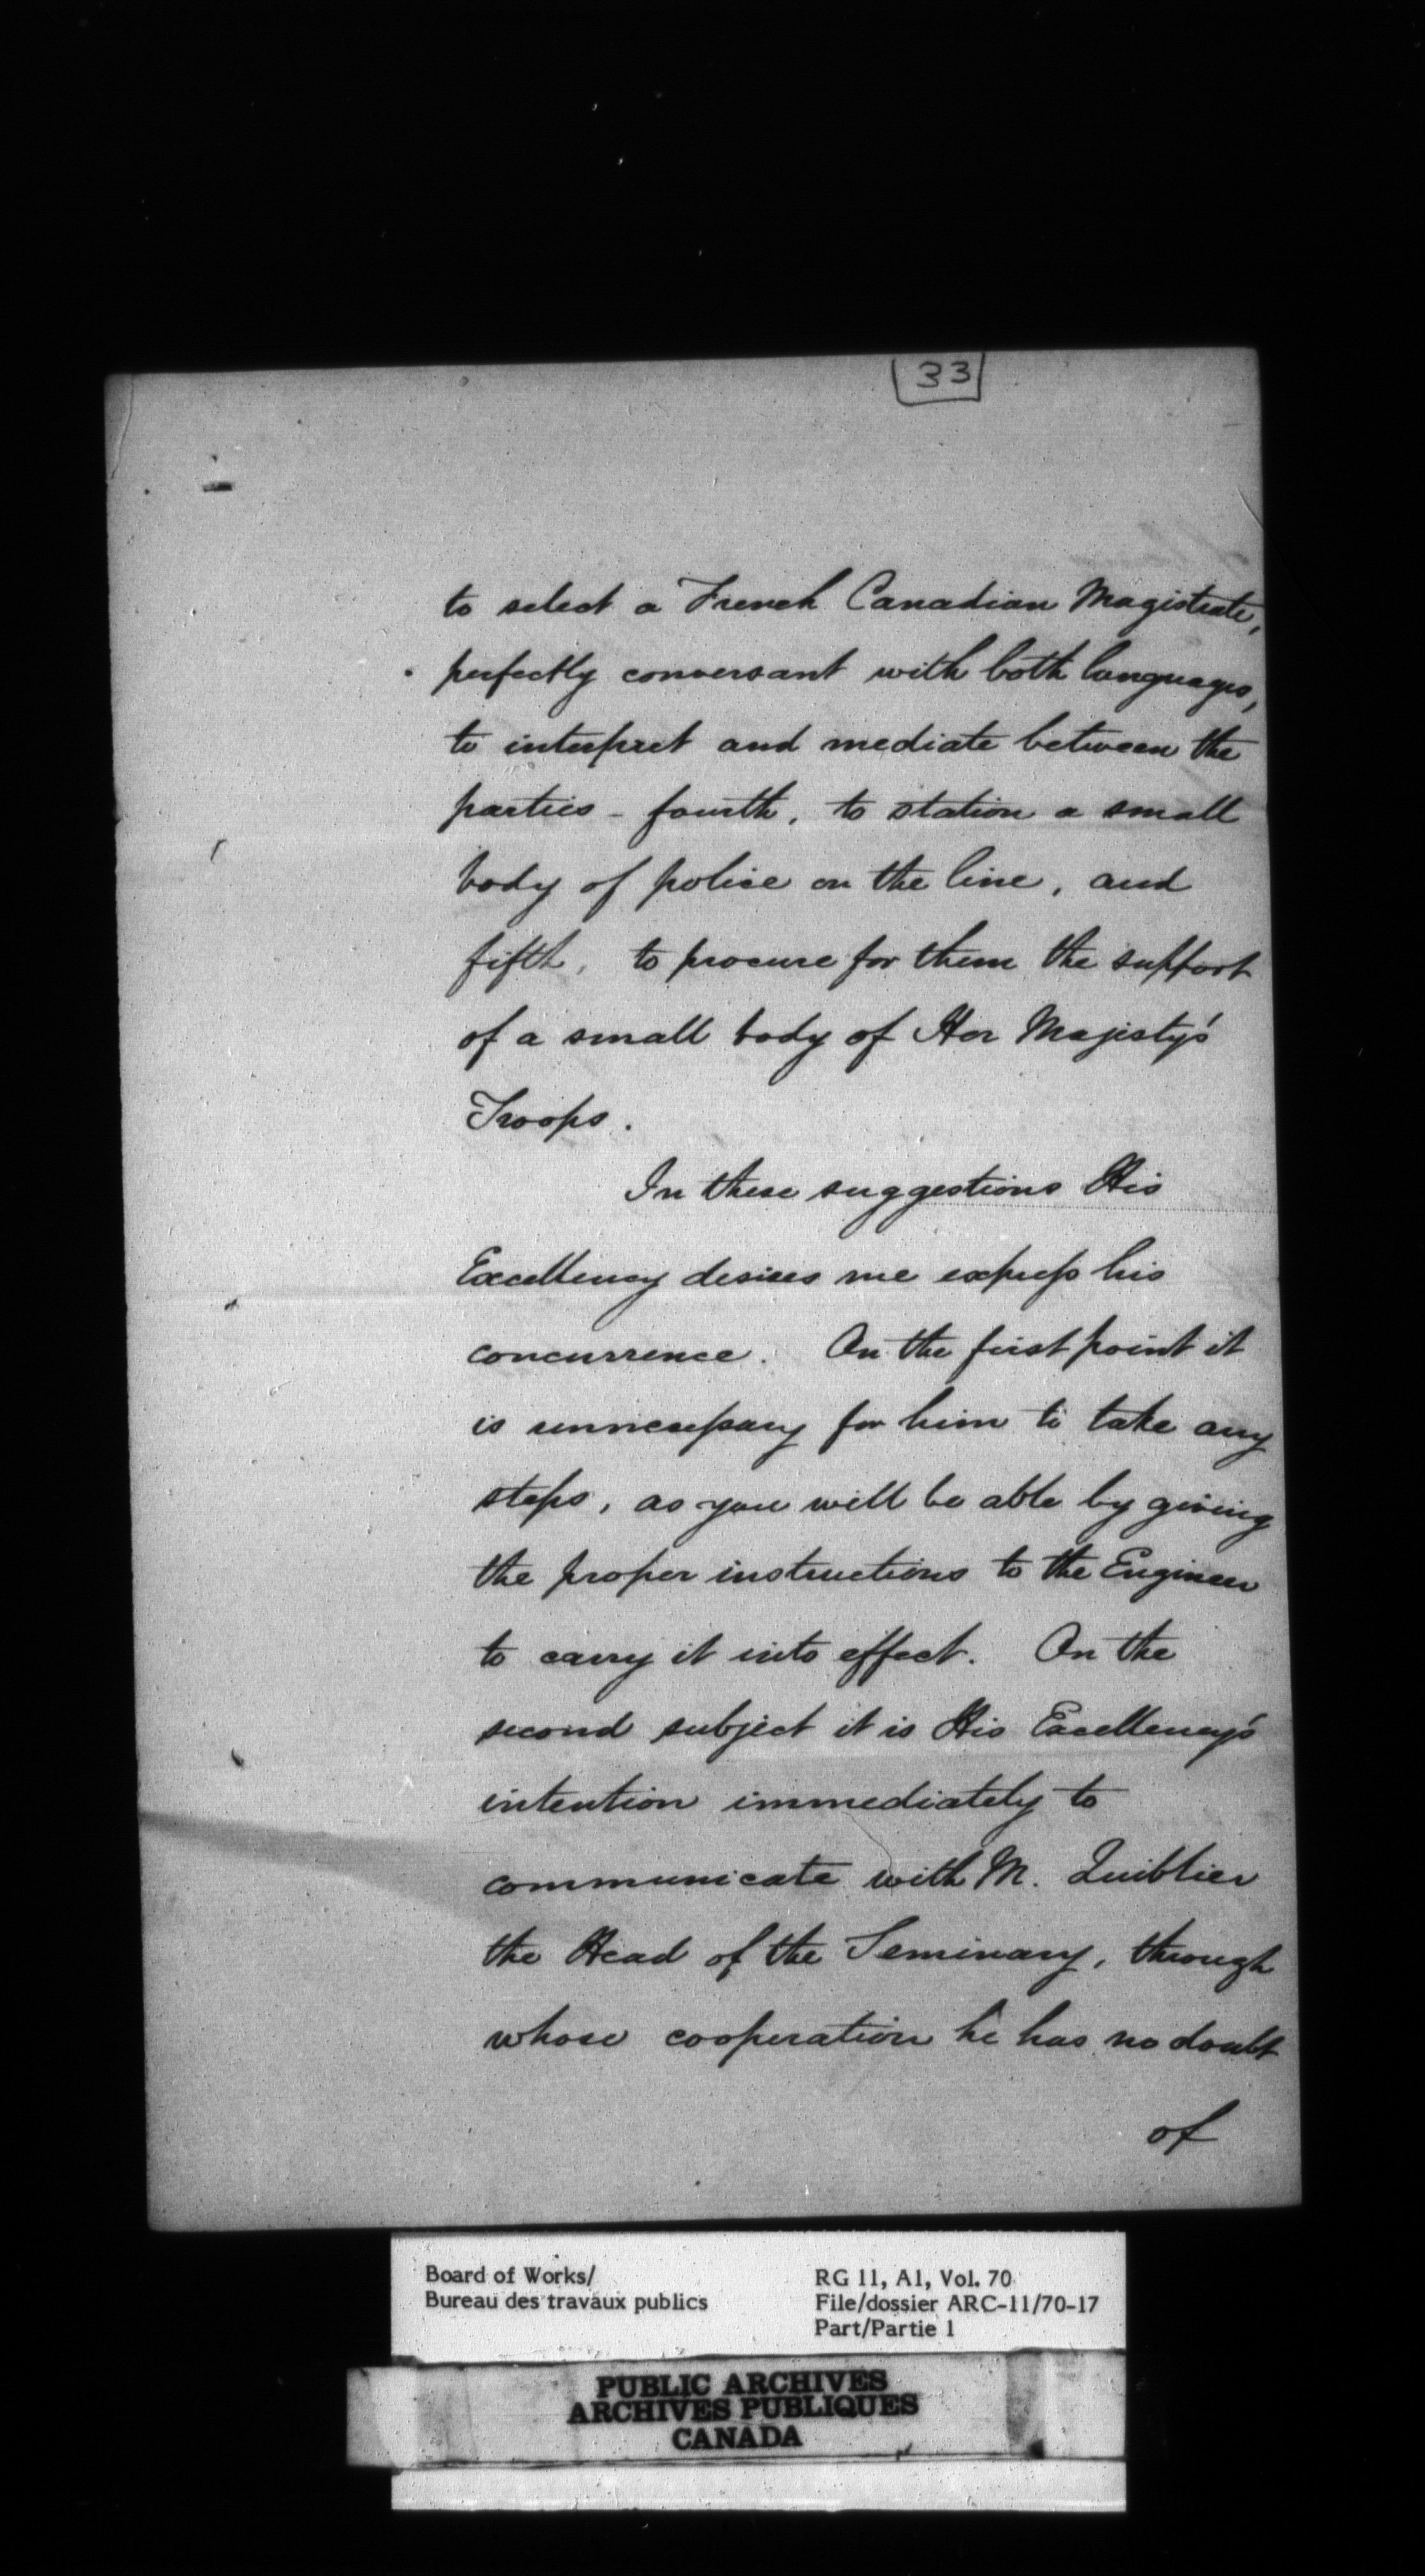 33
to select a French Canadian Magistrate,
perfectly conversant with both languages,
to interpret and mediate between the
parties - fourth, to station a small
body of police on the line, and
fifth, to procure for them the support
of a small body of Her Majesty's
Troops.
In these suggestions His
Excellency desires me express his
concurrence. On the first point it
is unnecessary for him to take any
steps, as you will be able by giving
the proper instructions to the Engineer
to carry it into effect. On the
second subject it is His Excellency's
intention immediately to
communicate with M. Quiblier
the Head of the Seminary, through
whose cooperation he has no doubt
of
Board of Works/
Bureau des travaux publics
RG 11, A1, Vol. 70
File/dossier ARC-11/70-17
Part/Partie 1
PUBLIC ARCHIVES
ARCHIVES PUBLIQUES
CANADA